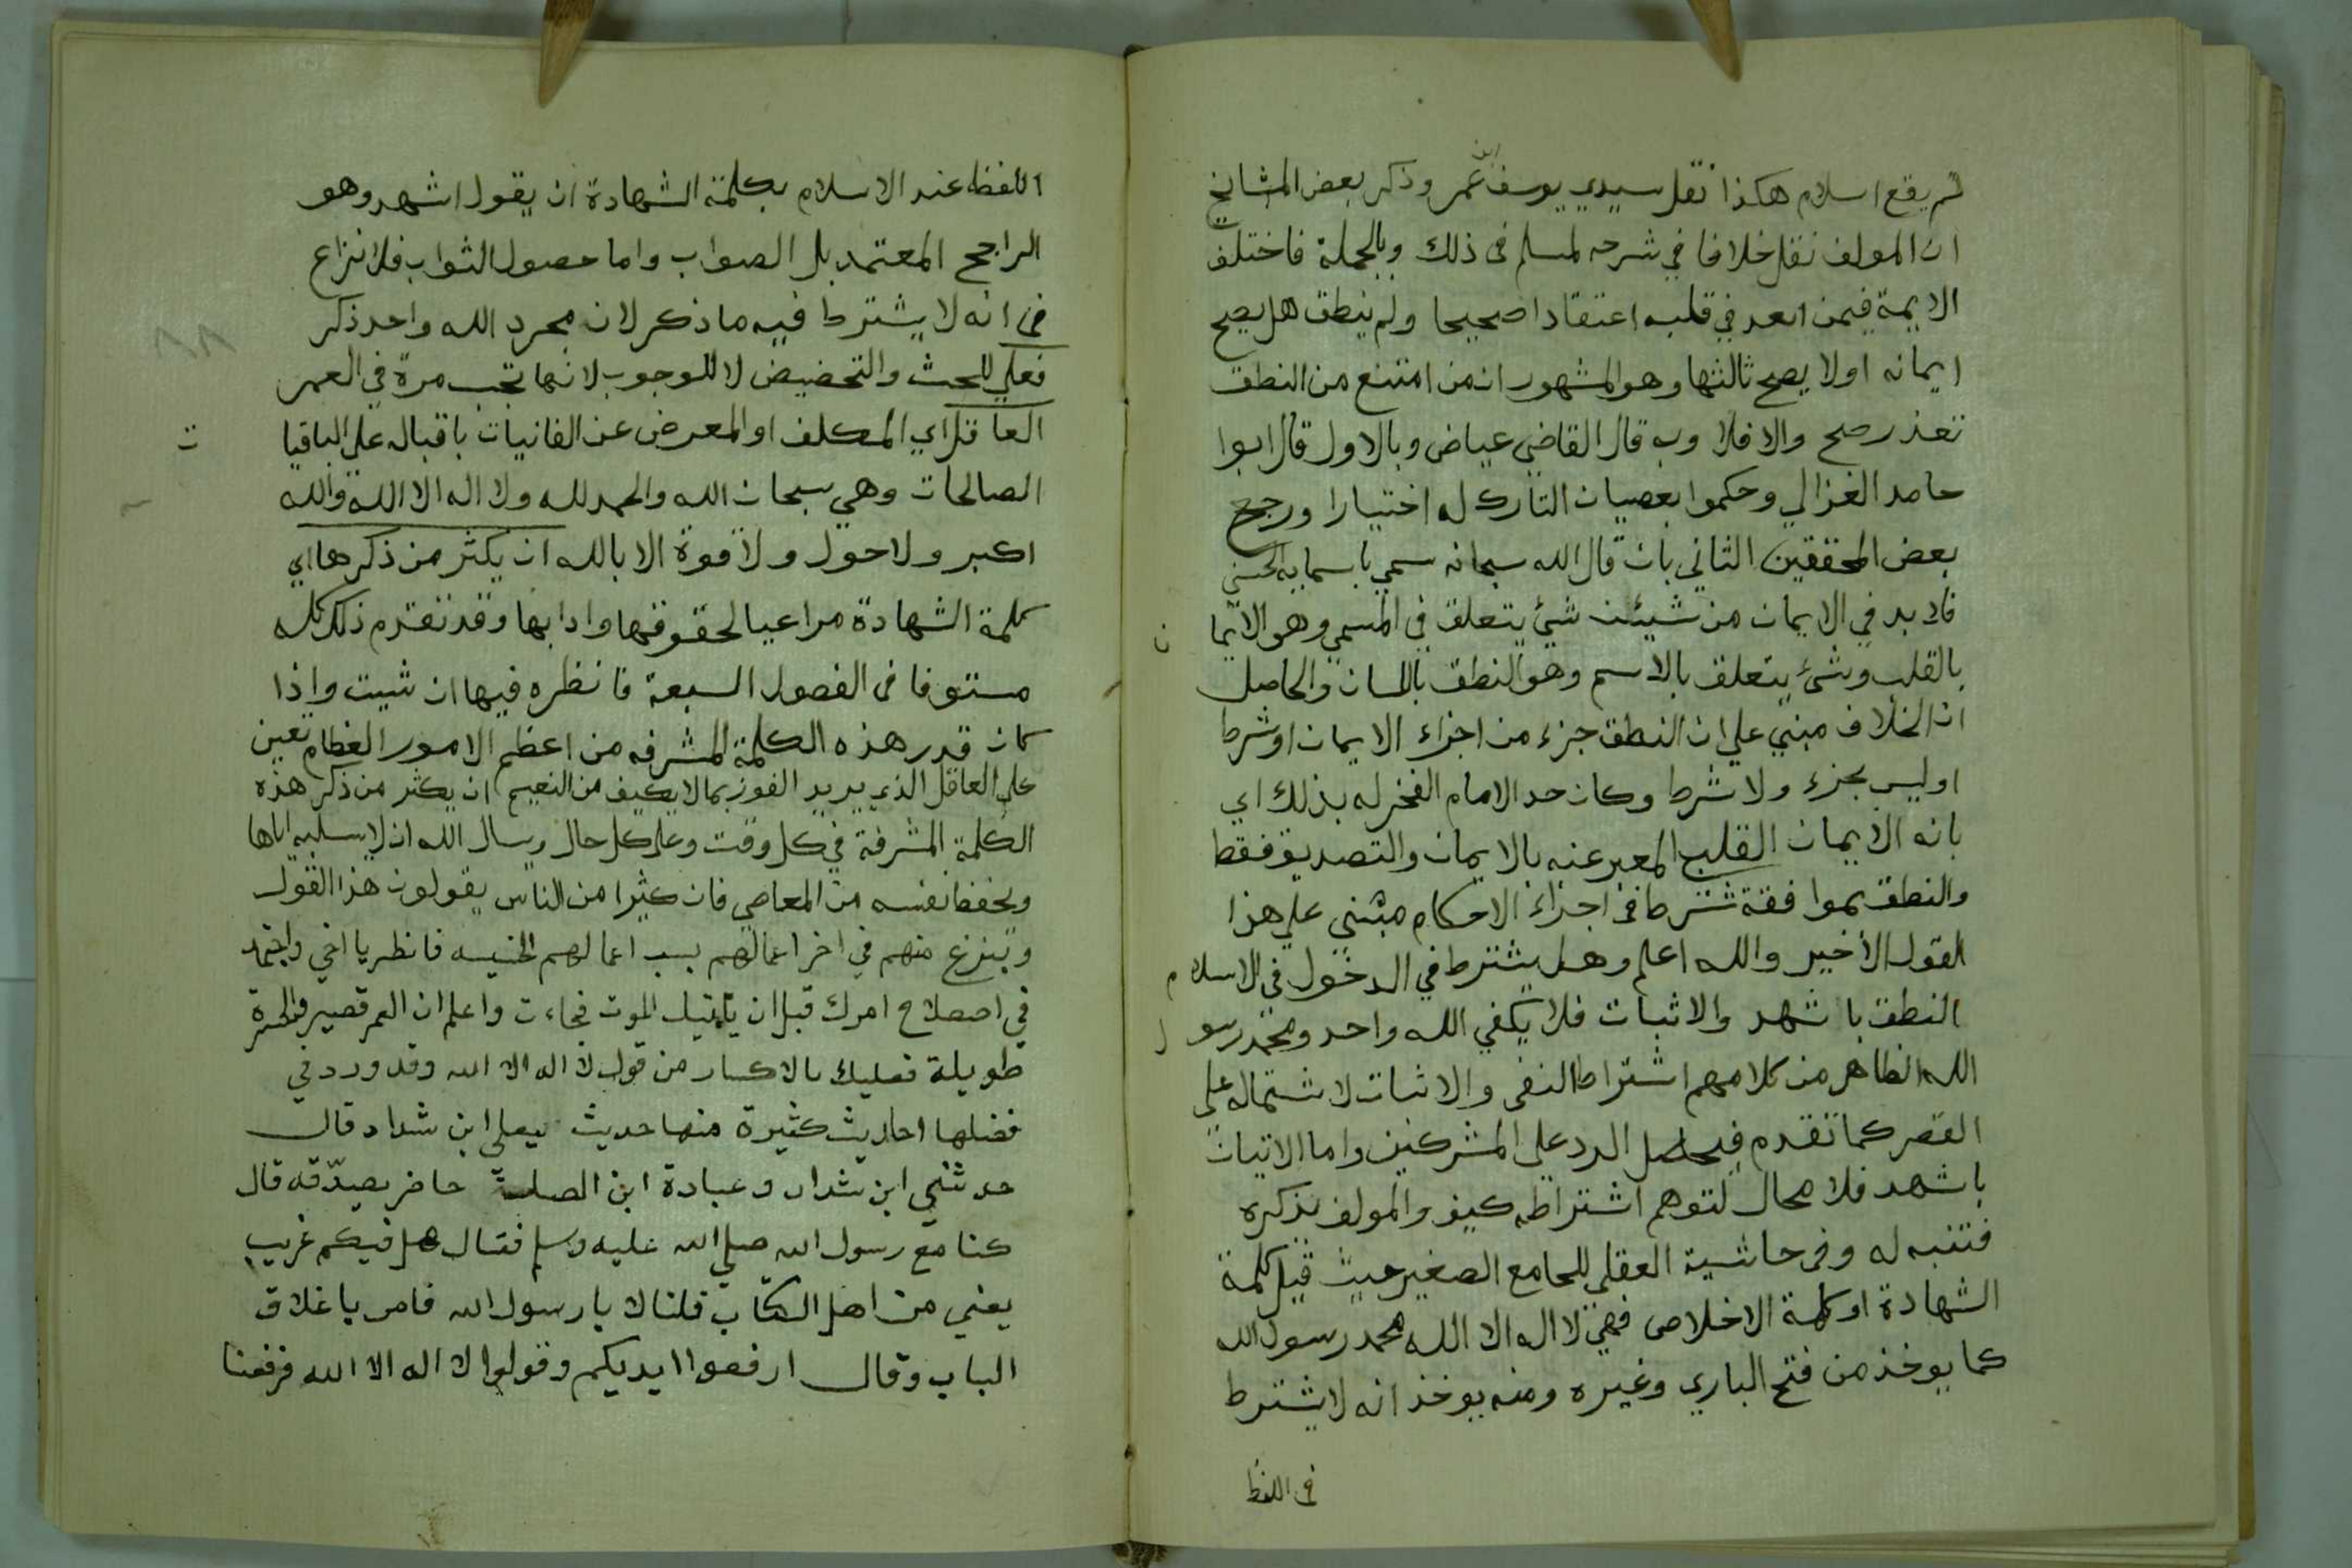 لم يقع اسلام هكذا نقل سيدي يوسف ابن عمر وذكر بعض المشايخ
ان المولف نقل خلافا في شرحه لمسلم في ذلك وبالجملة فاختلف
الايمة فيمن انعقد في قلبه اعتقادا صحيحا ولم ينطق هل يصح
ايمانه اولا يصح ثالثها وهو المشهور ان من امتنع من النطق
تعذر صح والا فلا وبه قال القاضي عياض وبالاول قال ابوا
حامد الغزالي وحكموا بعصيان التارك له اختيارا ورجح
بعض المحققين الثاني بان قال الله سبحانه سمي باسمايه الحسني
فلا بد في الايمان من شيئن شيئ يتعلق في المسمي وهو الايما ن
بالقلب وشئ يتعلق بالاسم وهو النطق باللسان والحاصل
ان الخلاف مبني علي ان النطق جزء من اجزاء الايمان او شرط
اوليس بجزء ولا شرط وكان حد الامام الفخر له بذلك اي
بانه الايمان القلبي المعبر عنه بالايمان والتصديق فقط
والنطق بموافقة شرط في اجراء الاحكام مبنني علي هذا
القول الأخير والله اعلم وهل يشترط في الدخول في الاسلا م
النطق باشهد والاثبات فلا يكفي الله واحد ومحمد رسو ل
الله الظاهر من كلامهم اشتراط النفي والاثبات لاشتماله علي
القصر كما تقدم فيحصل الرد علي المشركين واما الاتيان
باشهد فلا محال لتوهم اشتراطه كيف والمولف يذكره
فتنبه له وفي حاشية العقلي للجامع الصغير حيث قيل كلمة
الشهادة او كلمة الاخلاص فهي لا اله الا الله محمد رسول الله
كما يوخذ من فتح الباري وغيره ومنه يوخذ انه لا يشترط
في اللفظ
اللفظ عند الاسلام بكلمة الشهادة ان يقول اشهد وهو
الراجح المعتمد بل الصواب واما حصول الثواب فلا نزاع
في انه لا يشترط فيه ما ذكر لان مجرد الله واحد ذكر
فعلي للحث والتحضيض لا للوجوب لانها تجب مرة في العمر
العاقل اي المكلف او المعرض عن الفانيات باقباله علي الباقيا ت
الصالحات وهي سبحان الله والحمد لله ولا اله الا الله والله
اكبر ولا حول ولا قوة الا بالله ان يكثر من ذكرها اي
كلمة الشهادة مراعيا لحقوقها وادابها وقد تقدم ذلك كله
مستوفا في الفصول السبعة فانظره فيها ان شيت واذا
كان قدر هذه الكلمة المشرفه من اعظم الامور العظام تعين
علي العاقل الذي يريد الفوز بما لا يكيف من النعيم ان يكثر من ذكر هذه
الكلمة المشرفة في كل وقت وعلي كل حال ويسال الله ان لا يسلبه اياها
ويحفظ نفسه من المعاصي فان كثيرا من الناس يقولون هذا القول
وينزع منهم في اخر اعمالهم بسبب اعمالهم الخسيسه فانظر يا اخي واجتهد
في اصصلاح امرك قبل ان ياتيك الموت فجاءت واعلم ان العمر قصير والحسرة
طويلة فعليك بالاكسار من قول لا اله الا الله وقد ورد في
فضلها احاديث كثيرة منها حديث يعلي ابن شداد قال
حدثني ابن شداد وعبادة ابن الصلمة حاضر يصدّقه قال
كنا مع رسول الله صلي الله عليه وسلم فقال هل فيكم غريب
يعني من اهل الكتاب قلنا لا يا رسول الله فامر باغلاق
الباب وقال ارفعوا ايديكم وقولوا لا اله الا الله فرفعنا
٨٨